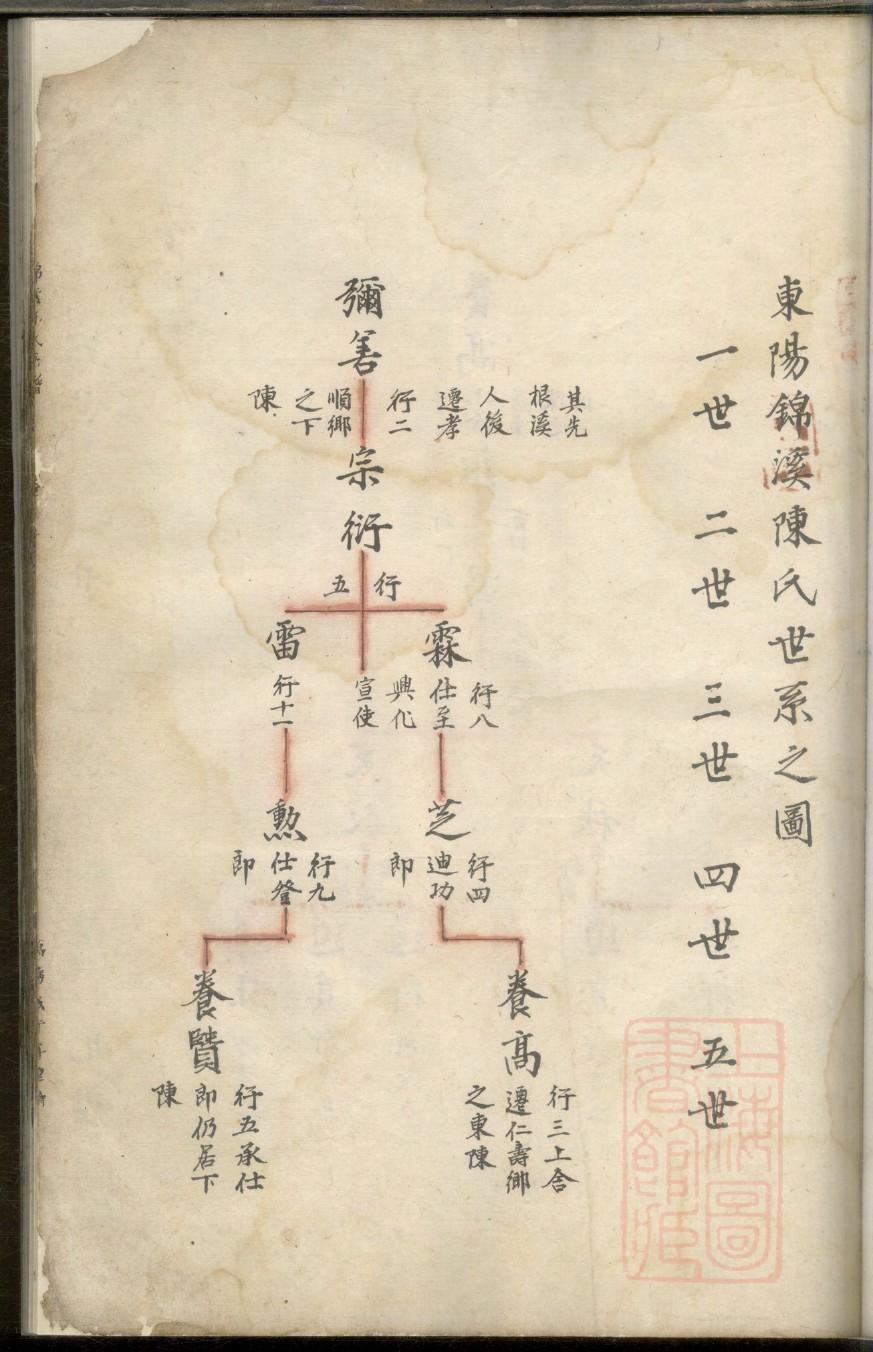 東陽錦溪陳氏世系之圖
一世 二世 三世 四世 五世
彌善
其先
根溪
人後
遷孝
行二
順鄉
之下
陳
宗衍
行
五
霖
行八
仕至
興化
宣使
雷
行十一
芝
行四
迪功
即
勲
行九
仕登
即
養高
行三上舍
遷仁壽鄉
之東陳
養賢
行五承仕
即仍居下
陳
上海圖
書館藏